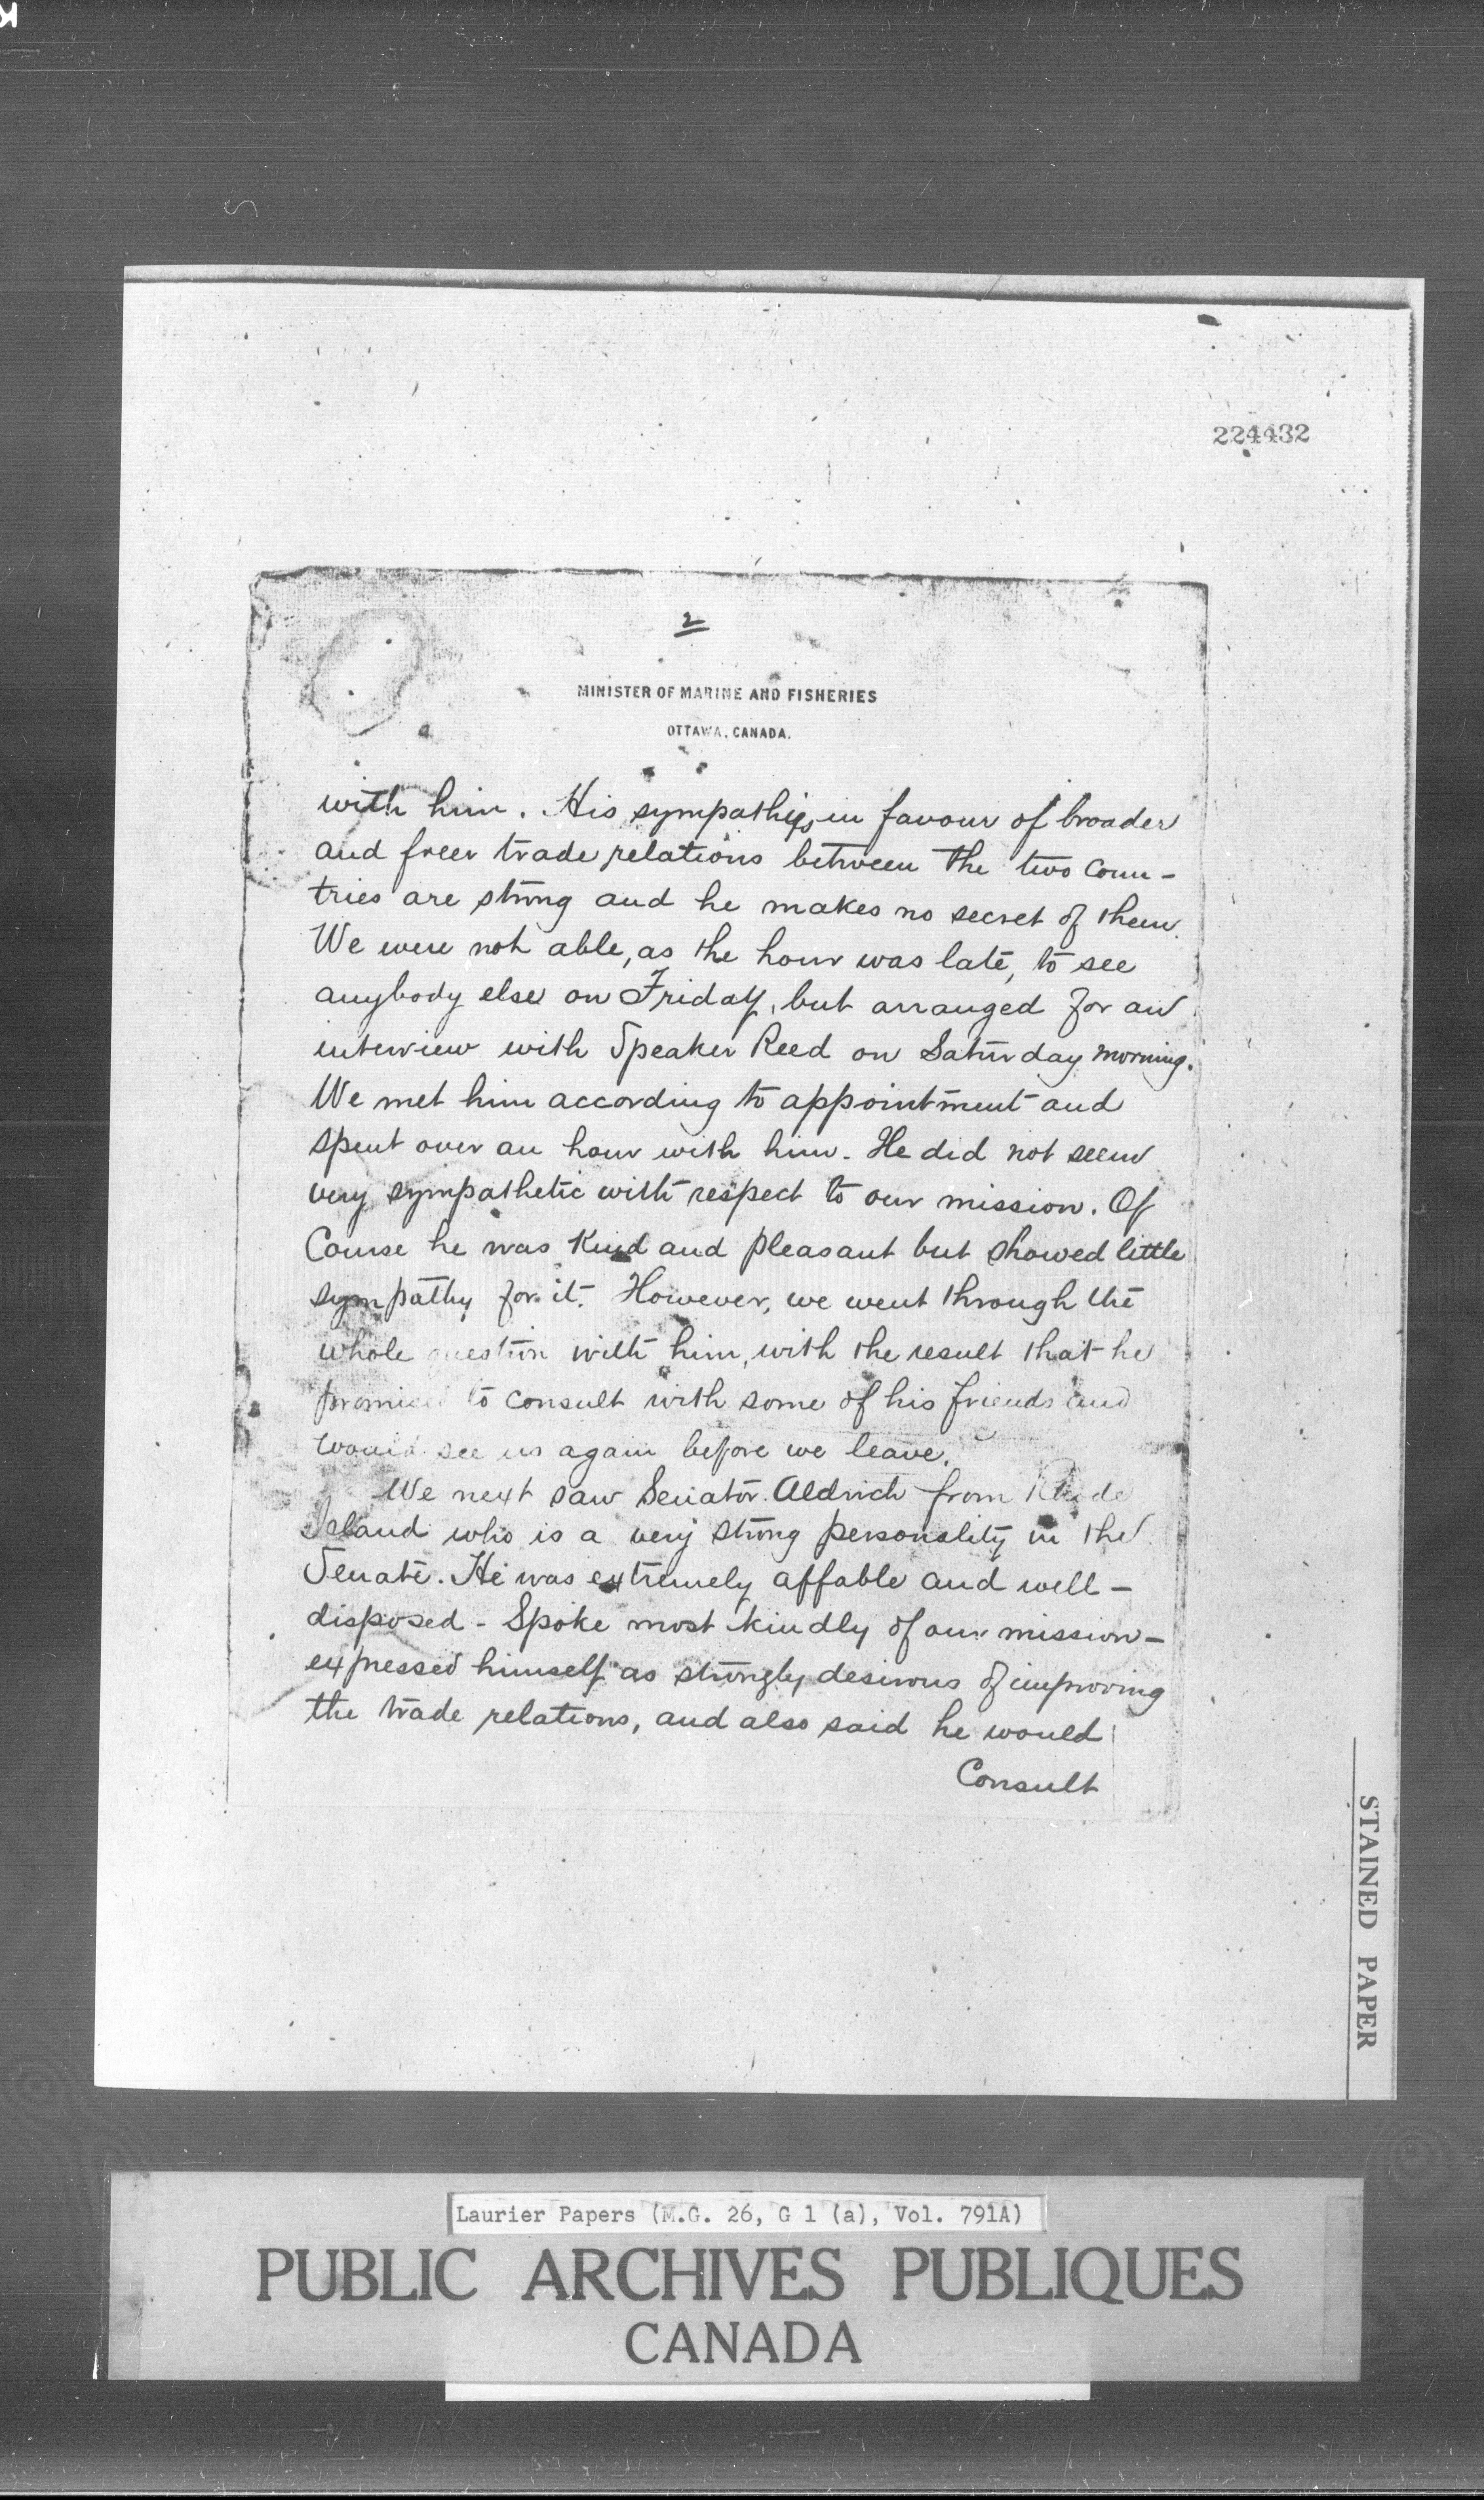 224432
2
MINISTER OF MARINE AND FISHERIES
OTTAWA, CANADA.
with him. His sympathies in favour of broader
and freer trade relations between the two coun-
tries are strong and he makes no secret of them.
We were not able, as the hour was late, to see
anybody else on Friday, but arranged for an
interview with Speaker Reed on Saturday morning.
We met him according to appointment and
spent over an hour with him. He did not seem
very sympathetic with respect to our mission. Of
Course he was kind and pleasant but showed little
sympathy for it. However, we went through the
whole question with him, with the result that he
promised to consult with some of his friends and
would see us again before we leave.
We next saw Senator Aldrich from Rhode
Island who is a very strong personality in the
Senate. He was extremely affable and well-
disposed - Spoke most kindly of our mission -
expressed himself as strongly desirous of improving
the trade relations, and also said he would
Consult
STAINED PAPER
Laurier Papers (M.G. 26, G 1 (a), Vol. 791A)
PUBLIC ARCHIVES PUBLIQUES
CANADA